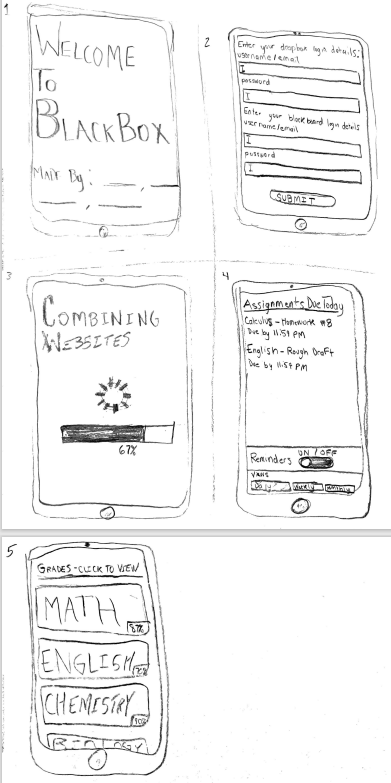 1
WELCOME
To
BLACKBOX
Made By: ___, ___
___, ___
2
Enter your dropbox login details:
username/email
I
password
I
Enter your blackboard login details
username/email
I
password
I
SUBMIT
3
COMBINING
WEBSITES
67%
4
Assignments Due Today
Calculus - Homework #8
Due by 11:59 PM
English - Rough Draft
Due by 11:59 PM
ON / OFF
Reminders
Daily Weekly Monthly
5
GRADES-CLICK TO VIEW
MATH
87%
ENGLISH
CHEMISTRY
90%